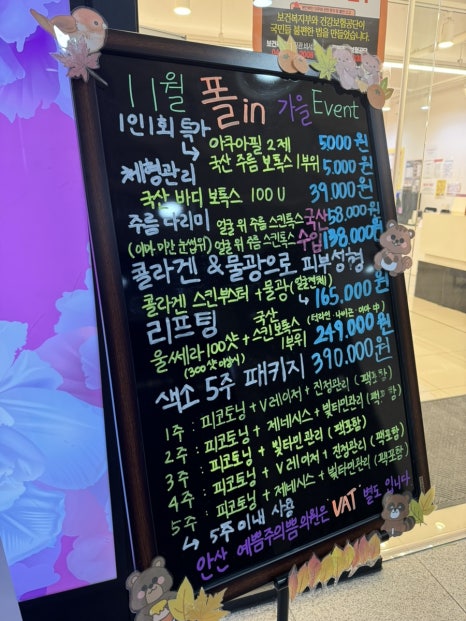 보건복지부와 건강보험공단이
국민들 불편한 법을 만들었습니다.
11월 폴in 가을 Event
1인1회 특가
↳ 아쿠아필 2제 5,000원
국산 주름 보톡스 1부위 5,000원
체형관리
국산 바디 보톡스 100U 39,000원
주름 다리미 얼굴 위 주름 스킨톡스 국산 58,000원
(이마 미간 눈썹위) 얼굴 위 주름 스킨톡스 수입 138,000원
콜라겐 & 물광으로 피부성형
콜라겐 스킨부스터 + 물광 (얼굴전체)
↳ 165,000원
리프팅 국산 (턱라인·나비존·이마 中)
울쎄라 100샷 + 스킨보톡스 1부위 249,000원
(300샷 이상시)
색소 5주 패키지 390,000원
1주 : 피코토닝 + V레이저 + 진정관리 (팩포함)
2주 : 피코토닝 + 제네시스 + 빛타민관리 (팩포함)
3주 : 피코토닝 + 빛타민관리 (팩포함)
4주 : 피코토닝 + V레이저 + 진정관리 (팩포함)
5주 : 피코토닝 + 제네시스 + 빛타민관리 (팩포함)
↳ 5주 이내 사용
안산 예쁨주의쁨의원은 "VAT" 별도 입니다